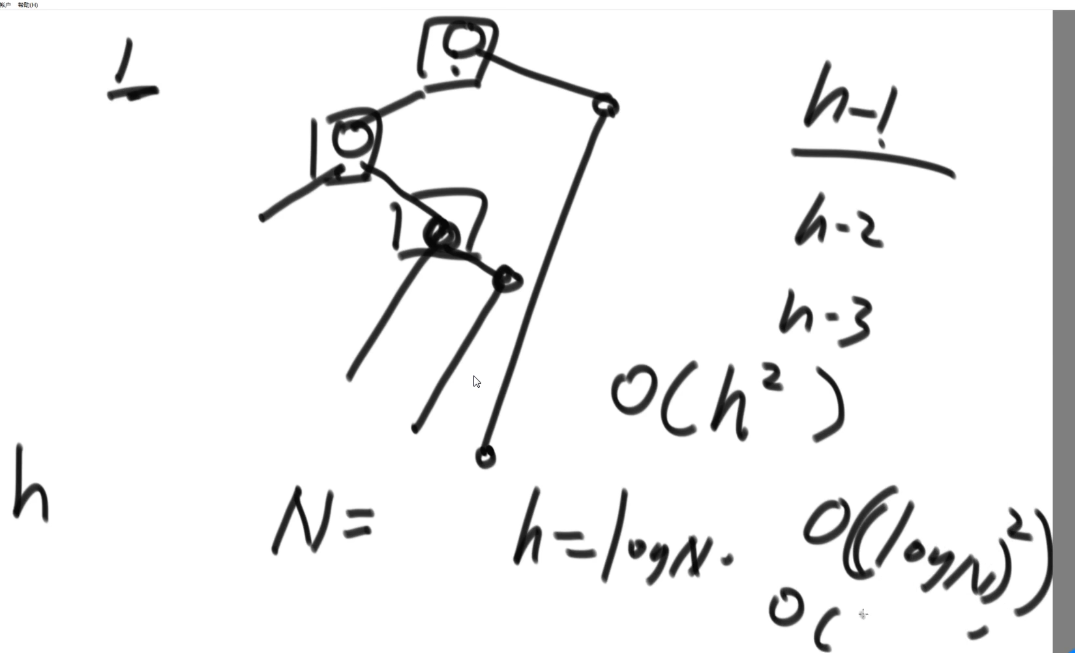 帐户 帮助(H)
1
h-1
h-2
h-3
O(h²)
h
N=
h=logN.
O((logN)²)
O(